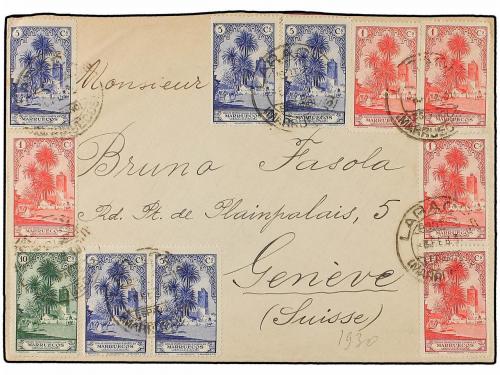 5 Cs 5 Cs 5 Cs 1 Cs 1 Cs
MARRUECOS MARRUECOS MARRUECOS MARRUECOS MARRUECOS
Monsieur
1 Cs 1 Cs
MARRUECOS MARRUECOS
Bruno Fasola
Rd. Pt. de Plainpalais, 5
LARACHE
10 Cs 5 Cs 5 Cs 1 Cs
MARRUECOS MARRUECOS MARRUECOS MARRUECOS
Genève
(Suisse)
1930